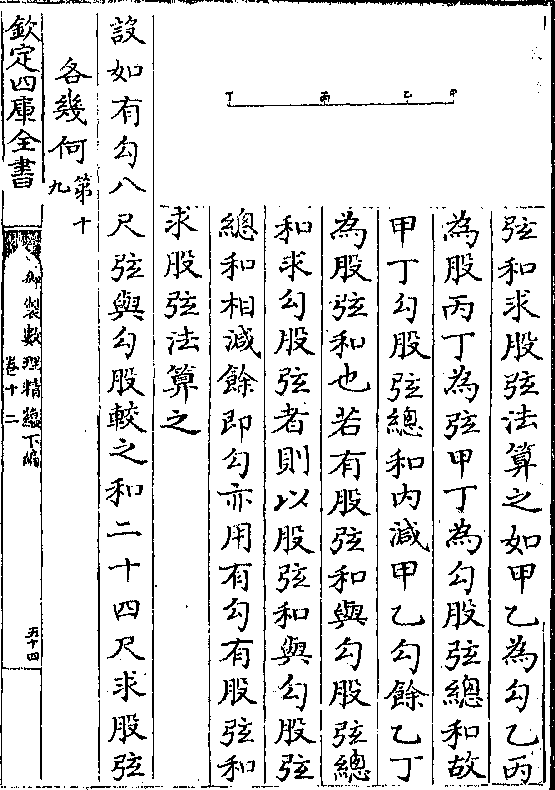 丁 丙 乙 甲
弦和求股弦法算之如甲乙為勾乙丙
為股丙丁為弦甲丁為勾股弦總和故
甲丁勾股弦總和内減甲乙勾餘乙丁
為股弦和也若有股弦和與勾股弦總
和求勾股弦者則以股弦和與勾股弦
總和相減餘即勾亦用有勾有股弦和
求股弦法算之
設如有勾八尺弦與勾股較之和二十四尺求股弦
各幾何第十九
欽定四庫全書
御製數理精藴下編
卷十二
五十四